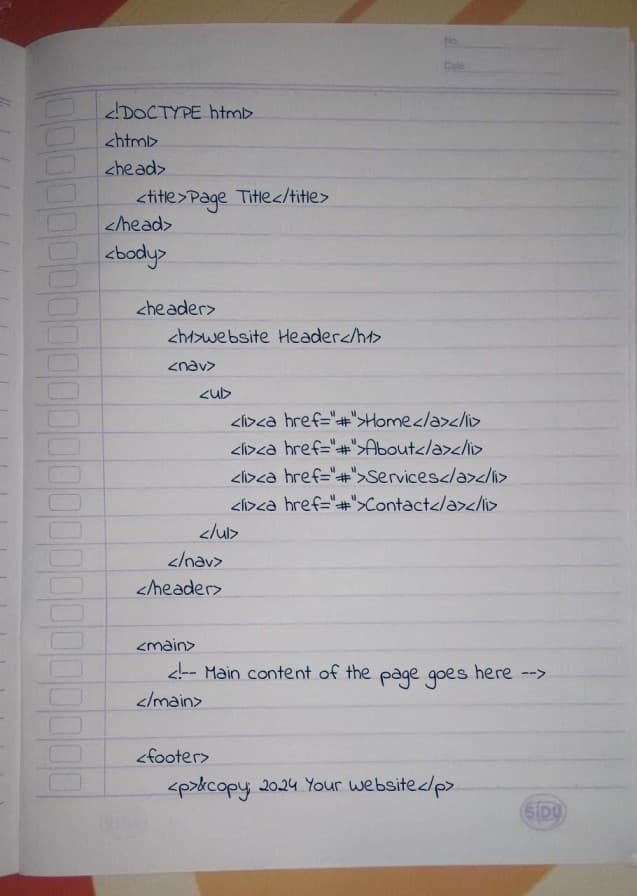 No
Date
<!DOCTYPE html>
<html>
<head>
<title>Page Title</title>
</head>
<body>
<header>
<h1>website Header</h1>
<nav>
<ul>
<li><a href="#">Home</a></li>
<li><a href="#">About</a></li>
<li><a href="#">Services</a></li>
<li><a href="#">Contact</a></li>
</ul>
</nav>
</header>
<main>
<!-- Main content of the page goes here -->
</main>
<footer>
<p>&copy; 2024 Your website</p>
SIDU